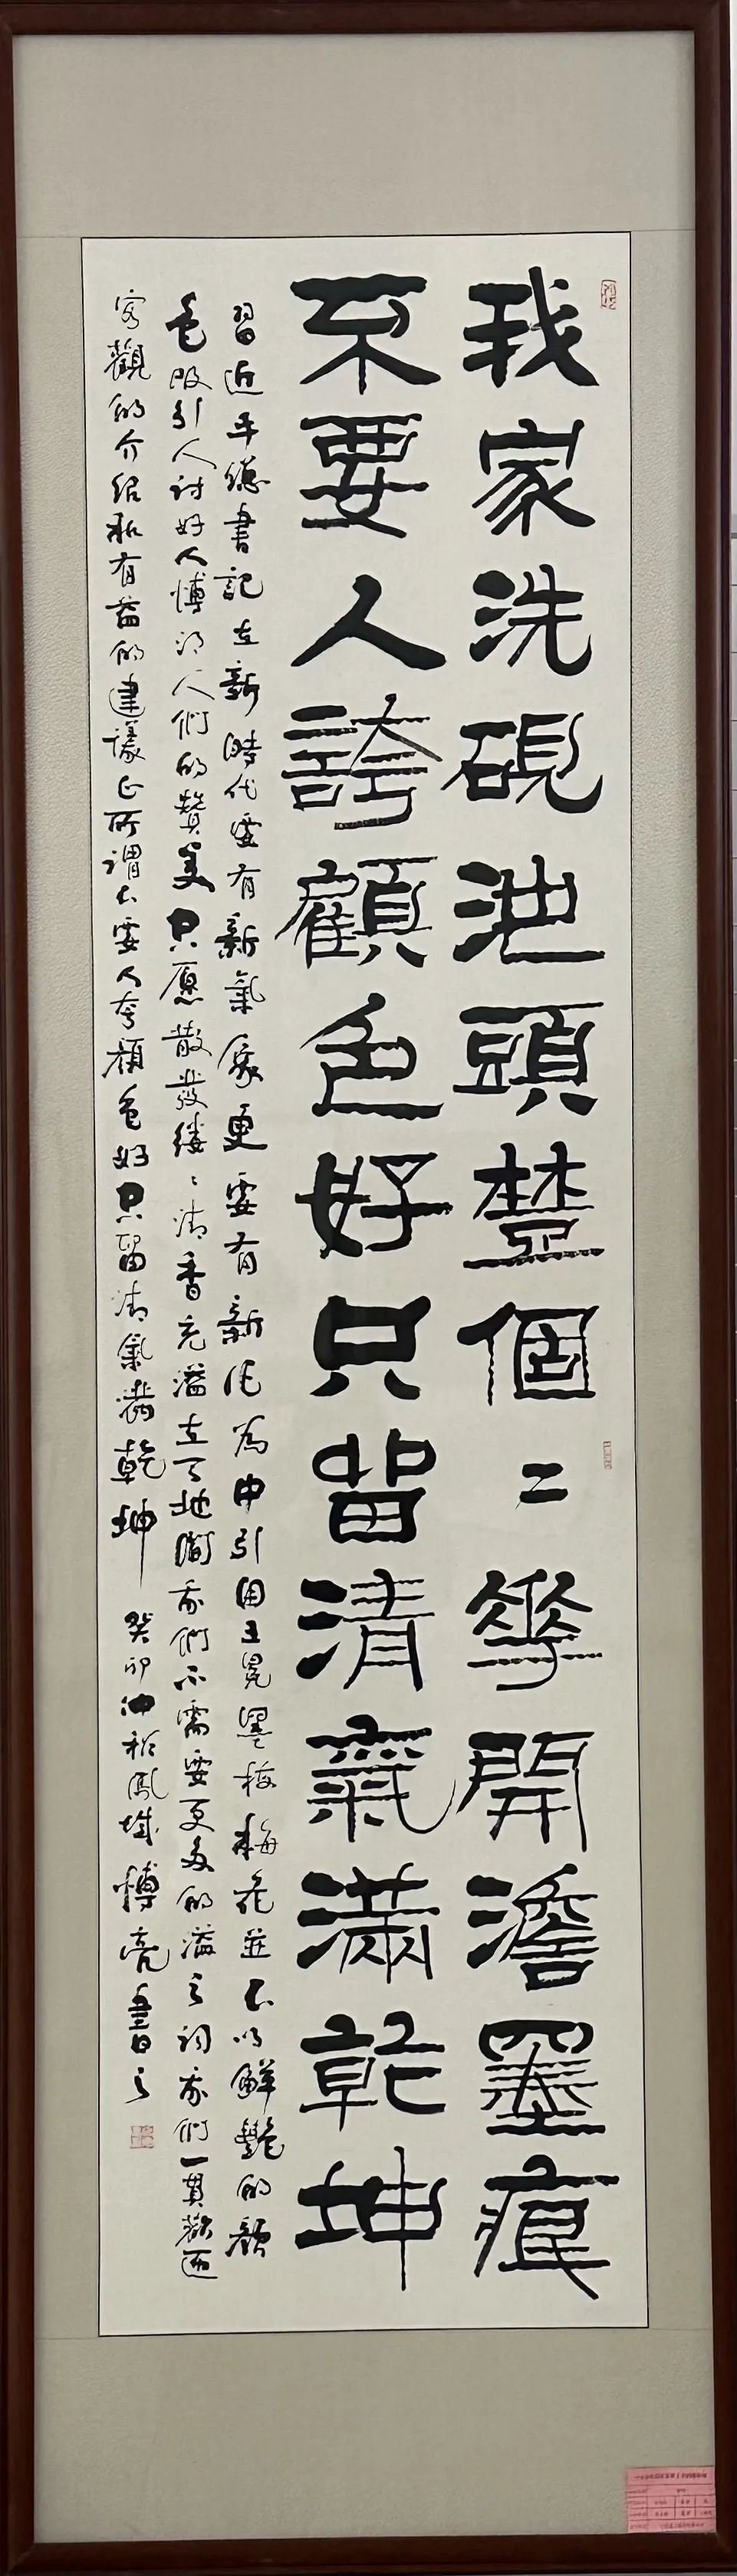 我家洗硯池頭𣗳個二華開澹墨痕
不要人誇顏色好只畱清氣滿乾坤
習近平總書記在新時代要有新氣象更要有新作為中引用王冕墨梅梅花並不以鮮艷的顏
色吸引人討好人博得人們的贊美只愿散發缕缕清香充溢在天地間我們不需要更多的溢之词我們一貫歡迎
客觀的介紹和有益的建議正所謂不要人夸顏色好只畱清氣滿乾坤
癸卯仲秋鳳城博亮書之